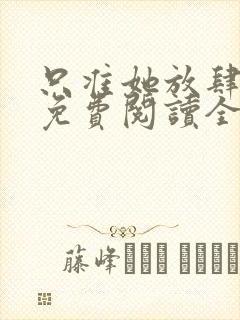 只准她放肆
免費閱讀全
藤峰